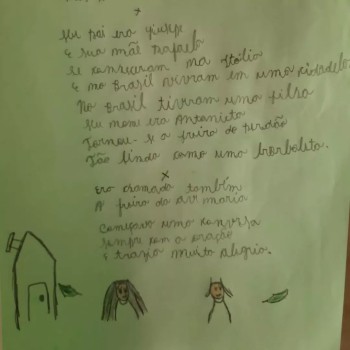 Seu pai era Giusep
E sua mãe Rafaela
Se conheceram na Itália
E no Brasil viviam em uma cidadela
No Brasil tiveram uma filha
Seu nome era Antonieta
Tornou-s a freira do perdão
Tão linda como uma borboleta.
Era chamada também
A freira da ave maria
Começava uma conversa
Sempre com a oração
E trazia muita alegria.